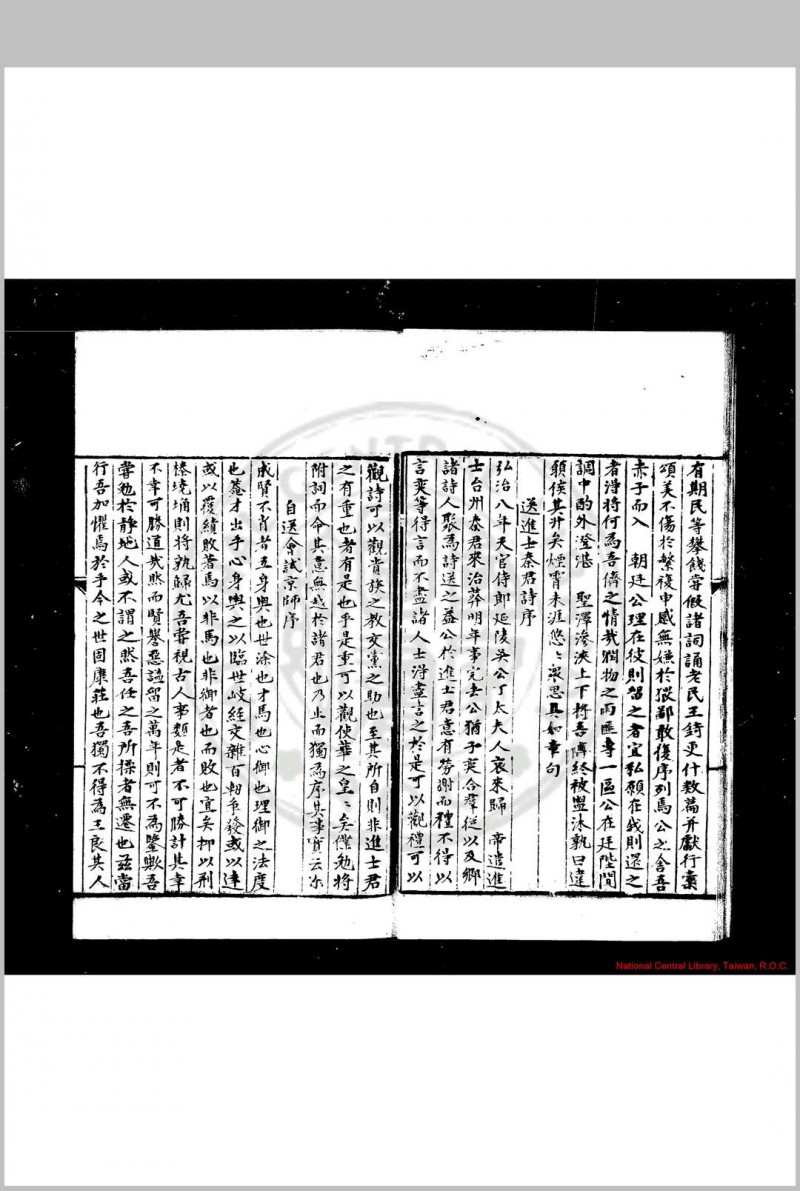 有期民等攀餞嘗假諸詞誦老民王錡更什数篇并獻行橐
頌美不傷於繁複申感無嫌於猥鄙敢復序列焉公之舍吾
赤子而入　朝廷公理在彼則留之者宜弘願在我則還之
者淂将何為吾儕之情哉猶物之而匪専一區公在廷陛間
調中酌外澄湛　聖澤滲浹上下将吾儕終被盥沐孰曰違
頟侯其升矣煙霄未涯悠〻衆思具如章句
送進士秦君詩序
弘治八年天官侍郎延陵吳公丁太夫人哀來歸　帝遣進
士台州秦君來治葬明年事完去公猶子奕合羣從以及鄉
諸詩人聚為詩送之益公於進士君意有勞謝而禮不得以
言奕等得言而不盡諸人士淂盡言之於是可以觀禮可以
觀詩可以觀貴族之教交黨之助也至其所自則非進士君
之有重也者有是也乎是重可以觀使華之皇〻矣僕勉将
附詞而命其意無越於諸君也乃止而獨為序其事實云尓
自送會試京師序
成賢不肖者五身輿也世涂也才馬也心御也理御之法度
也葢才出乎心身輿之以臨世岐経交雜百軔爭發或以達
或以覆績敗著焉以非馬也非御者也而敗也宜矣抑以荆
榛境埇則将孰歸尤吾嘗視古人事類是者不可勝計其幸
不幸可勝道哉然而賢譽惡謚留之萬年則可不為鑒歟吾
嘗勉於静地人或不謂之然吾任之吾所操者無遷也茲當
行吾加懼焉於乎今之世固康莊也吾獨不得為王良其人
National Central Library, Taiwan, R.O.C.